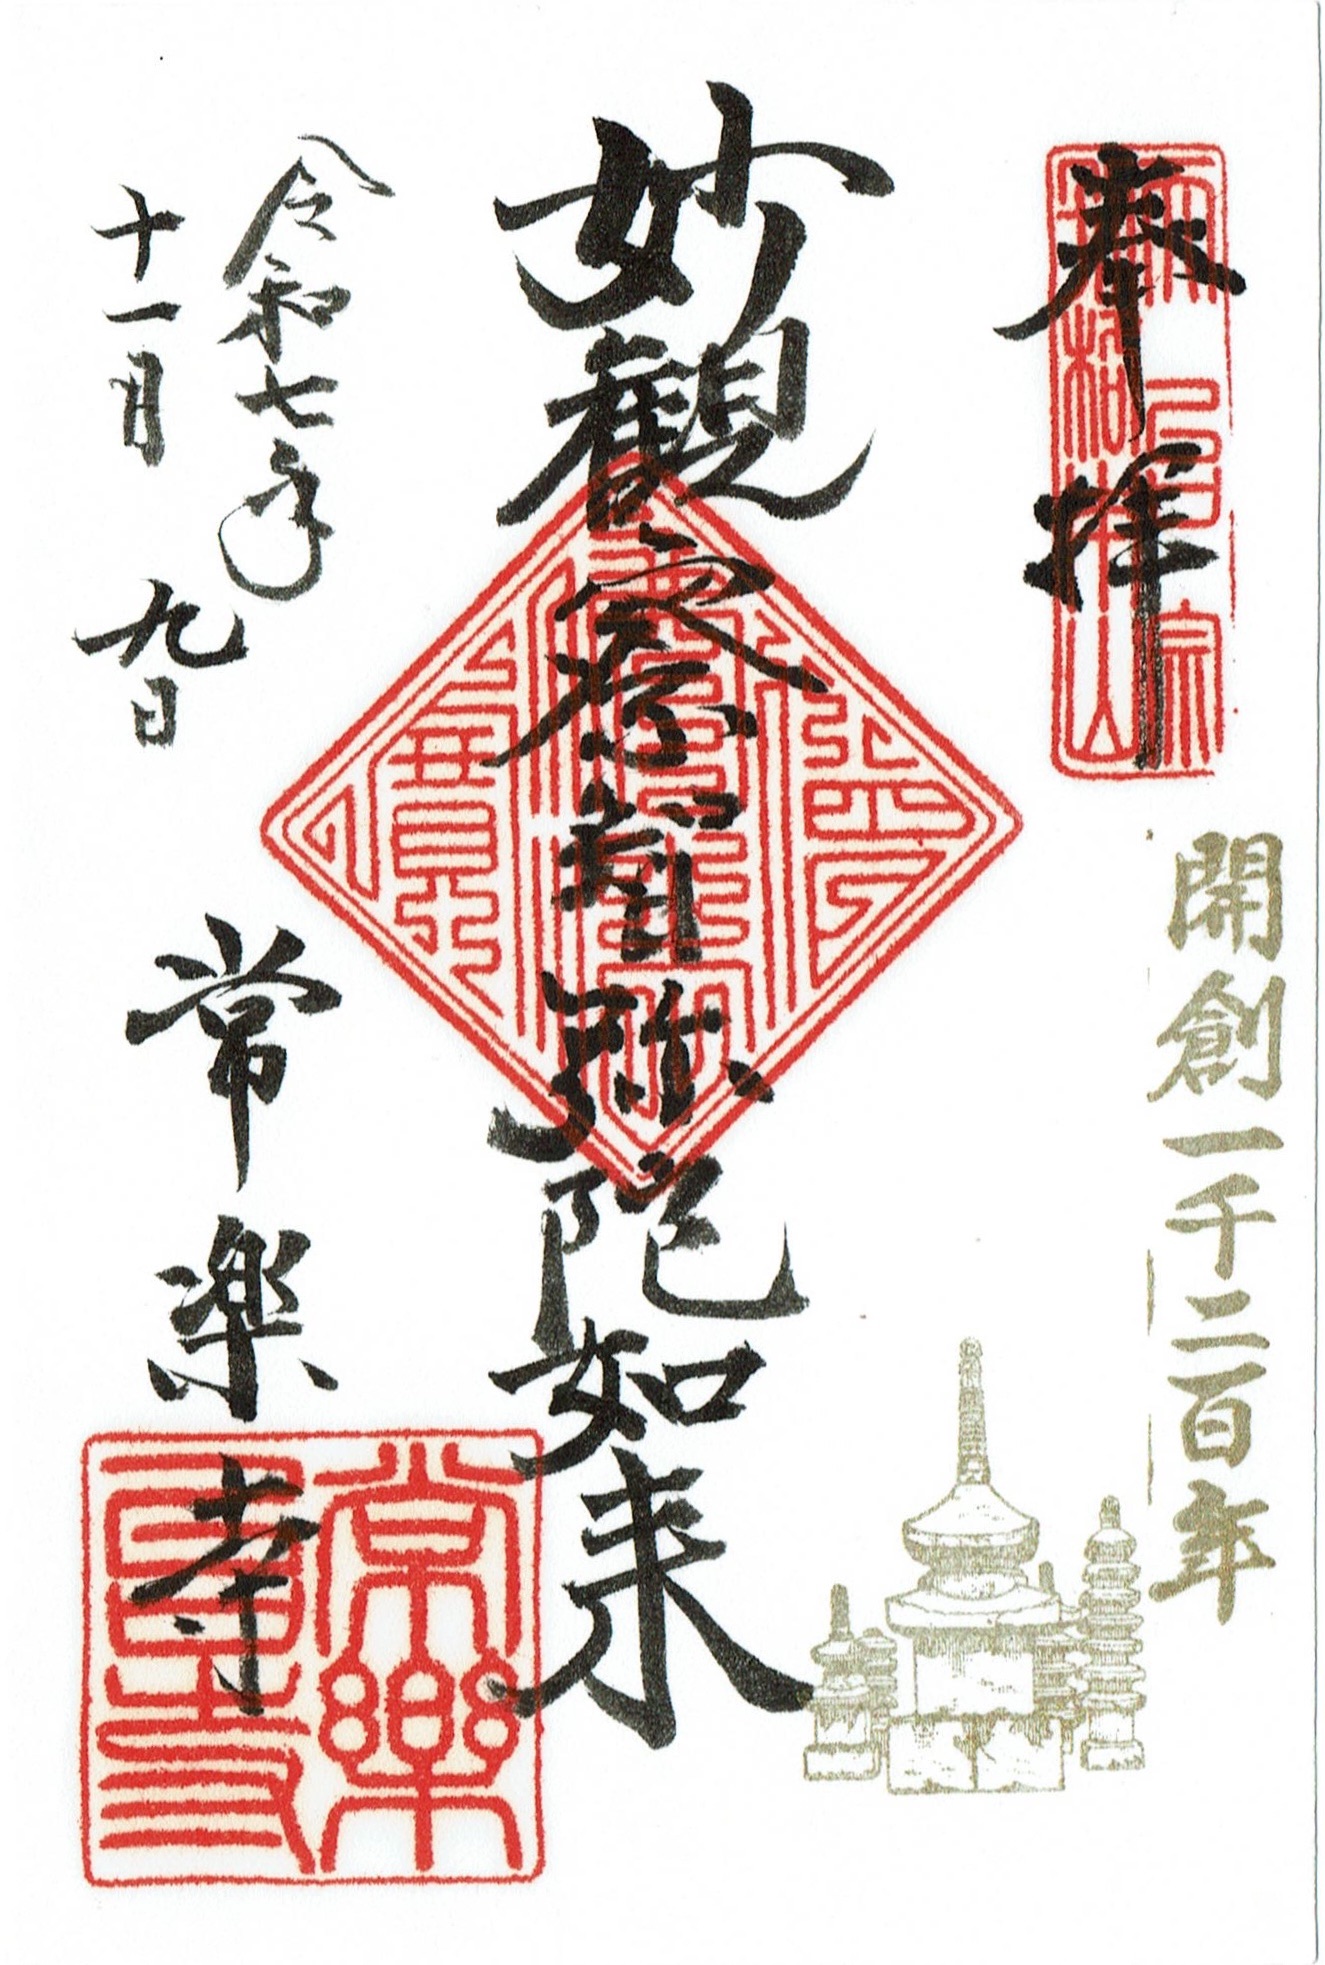 奉拝
開創一千二百年
妙觀察智弥陀如来
令和七年
十一月九日
常楽寺
常樂